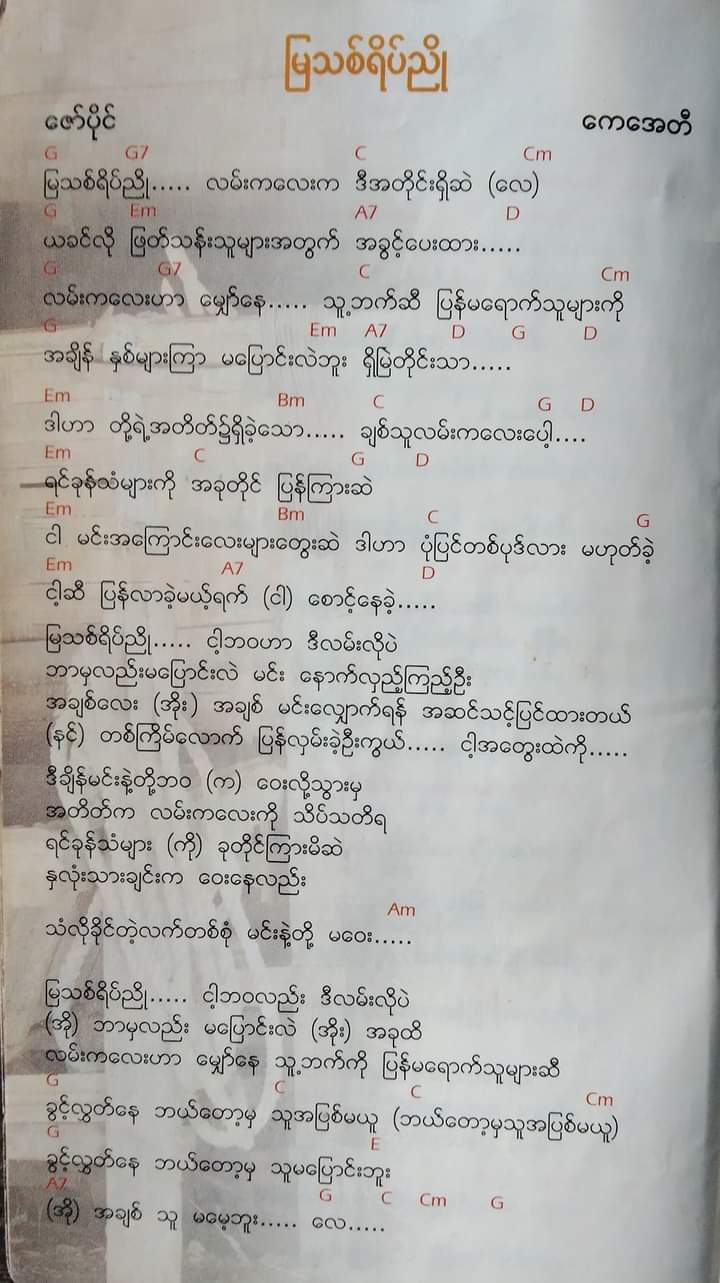 မြသစ်ရိပ်ညို
ဇော်ပိုင် ကေအေတီ
G G7 C Cm
မြသစ်ရိပ်ညို..... လမ်းကလေးက ဒီအတိုင်းရှိဆဲ (လေ)
G Em A7 D
ယခင်လို ဖြတ်သန်းသူများအတွက် အခွင့်ပေးထား.....
G G7 C Cm
လမ်းကလေးဟာ မျှော်နေ..... သူ့ဘက်ဆီ ပြန်မရောက်သူများကို
G Em A7 D G D
အချိန် နှစ်များကြာ မပြောင်းလဲဘူး ရှိမြဲတိုင်းသာ.....
Em Bm C G D
ဒါဟာ တို့ရဲ့အတိတ်၌ရှိခဲ့သော..... ချစ်သူလမ်းကလေးပေါ့....
Em C G D
ရင်ခုန်သံများကို အခုတိုင် ပြန်ကြားဆဲ
Em Bm C G
ငါ မင်းအကြောင်းလေးများတွေးဆဲ ဒါဟာ ပုံပြင်တစ်ပုဒ်လား မဟုတ်ခဲ့
Em A7 D
ငါ့ဆီ ပြန်လာခဲ့မယ့်ရက် (ငါ) စောင့်နေခဲ့.....
မြသစ်ရိပ်ညို..... ငါ့ဘဝဟာ ဒီလမ်းလိုပဲ
ဘာမှလည်းမပြောင်းလဲ မင်း နောက်လှည့်ကြည့်ဦး
အချစ်လေး (အိုး) အချစ် မင်းလျှောက်ရန် အဆင်သင့်ပြင်ထားတယ်
(နင်) တစ်ကြိမ်လောက် ပြန်လှမ်းခဲ့ဦးကွယ်..... ငါ့အတွေးထဲကို.....
ဒီချိန်မင်းနဲ့တို့ဘဝ (က) ဝေးလို့သွားမှ
အတိတ်က လမ်းကလေးကို သိပ်သတိရ
ရင်ခုန်သံများ (ကို) ခုတိုင်ကြားမိဆဲ
နှလုံးသားချင်းက ဝေးနေလည်း
Am
သံလိုခိုင်တဲ့လက်တစ်စုံ မင်းနဲ့တို့ မဝေး.....
မြသစ်ရိပ်ညို..... ငါ့ဘဝလည်း ဒီလမ်းလိုပဲ
(အို) ဘာမှလည်း မပြောင်းလဲ (အိုး) အခုထိ
လမ်းကလေးဟာ မျှော်နေ သူ့ဘက်ကို ပြန်မရောက်သူများဆီ
G C C Cm
ခွင့်လွှတ်နေ ဘယ်တော့မှ သူအပြစ်မယူ (ဘယ်တော့မှသူအပြစ်မယူ)
G E
ခွင့်လွှတ်နေ ဘယ်တော့မှ သူမပြောင်းဘူး
A7 G C Cm G
(အို) အချစ် သူ မမေ့ဘူး..... လေ.....